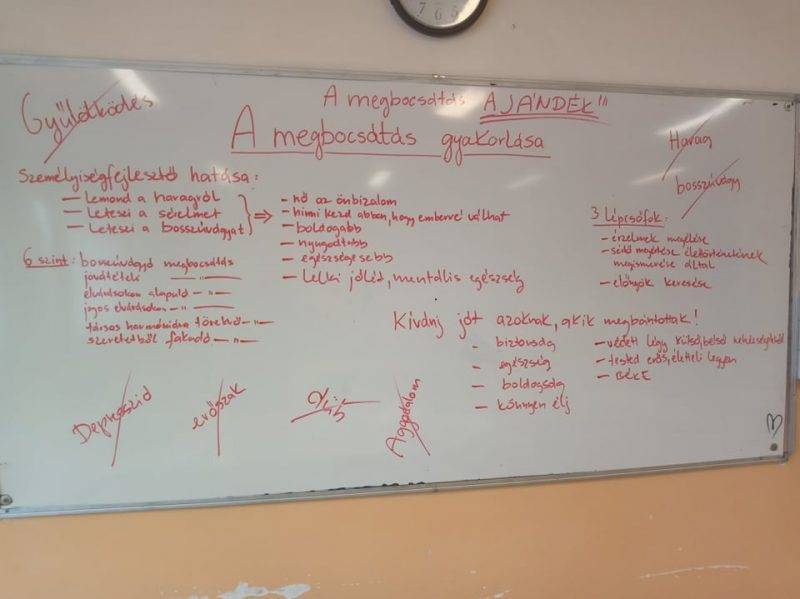 Gyűlölködés
A megbocsátás AJÁNDÉK"
A megbocsátás gyakorlása
Harag
bosszúvágy
Személyiségfejlesztő hatása:
— lemond a haragról
— leteszi a sérelmet
— leteszi a bosszúvágyat
⇒ - nő az önbizalom
- hinni kezd abban, hogy emberré válhat
- boldogabb
- nyugodtabb
- egészségesebb
- lelki jóléd, mentális egészség
3 lépcsőfok:
- érzelmek megélése
- sértő megértése élettörténetének
megismerése által
- előnyök keresése
6 szint: bosszúvágyó megbocsátás
jóvátételi —"—
elvárásokon alapuló —"—
jogos elvárásokon —"—
társas harmóniára törekvő —"—
szeretetből fakadó —"—
Kívánj jót azoknak, akik megbántottak!
- biztonság
- egészség
- boldogság
- könnyen élj
- védett légy külső, belső nehézségektől
- tested erős, életteli legyen
- BÉKE
Depresszió
erőszak
Aggodalom